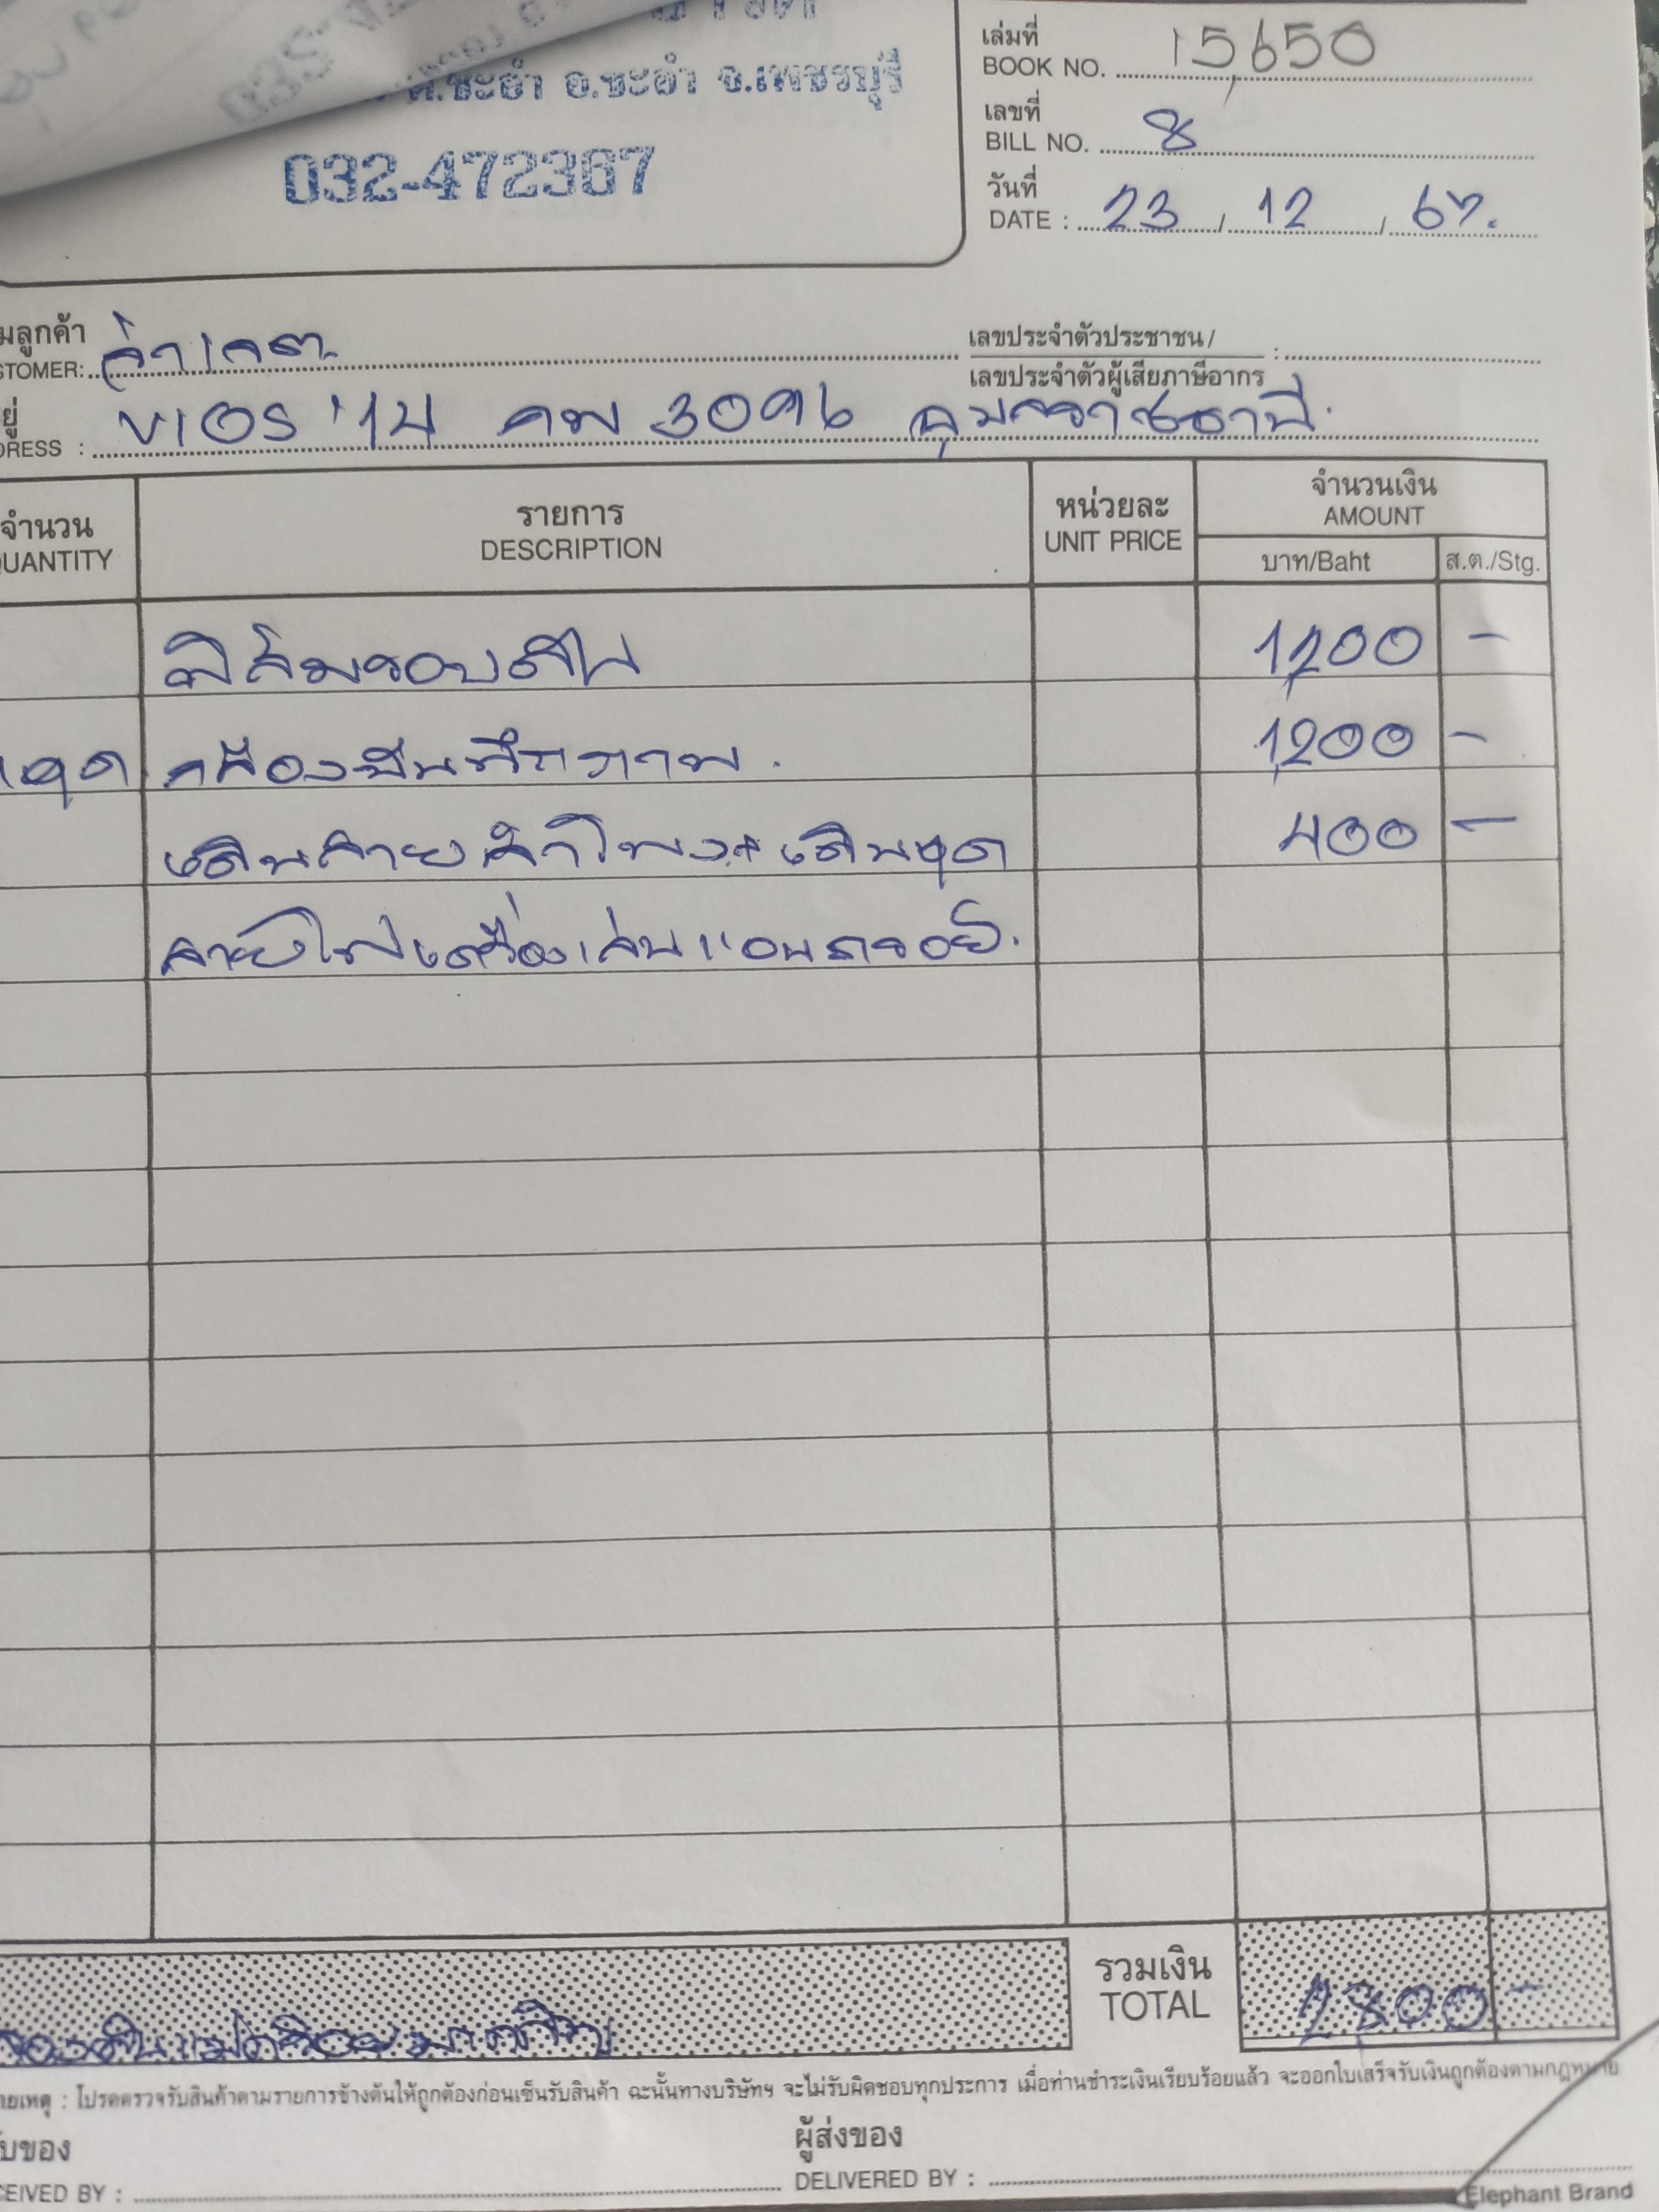 ต.ชะอำ อ.ชะอำ จ.เพชรบุรี
032-472367
เล่มที่
BOOK NO. 15,650
เลขที่
BILL NO. 8
วันที่
DATE : 23 / 12 / 67.
มลูกค้า
STOMER:
เลขประจำตัวประชาชน /
เลขประจำตัวผู้เสียภาษีอากร :
ยู่
DRESS : VIOS '14 3096
จำนวน รายการ หน่วยละ จำนวนเงิน
UANTITY DESCRIPTION UNIT PRICE AMOUNT
บาท/Baht ส.ต./Stg.
ฟิล์มรอบคัน 1,200 -
ชุด กล้องบันทึกภาพ. 1,200 -
เดินสายลำโพง + เดินชุด 400 -
สายไฟเครื่องเล่นแอนดรอย์.
รวมเงิน
TOTAL 2,800 -
ายเหตุ : โปรดตรวจรับสินค้าตามรายการข้างต้นให้ถูกต้องก่อนเซ็นรับสินค้า ฉะนั้นทางบริษัทฯ จะไม่รับผิดชอบทุกประการ เมื่อท่านชำระเงินเรียบร้อยแล้ว จะออกใบเสร็จรับเงินถูกต้องตามกฎหมาย
ับของ
CEIVED BY :
ผู้ส่งของ
DELIVERED BY :
Elephant Brand